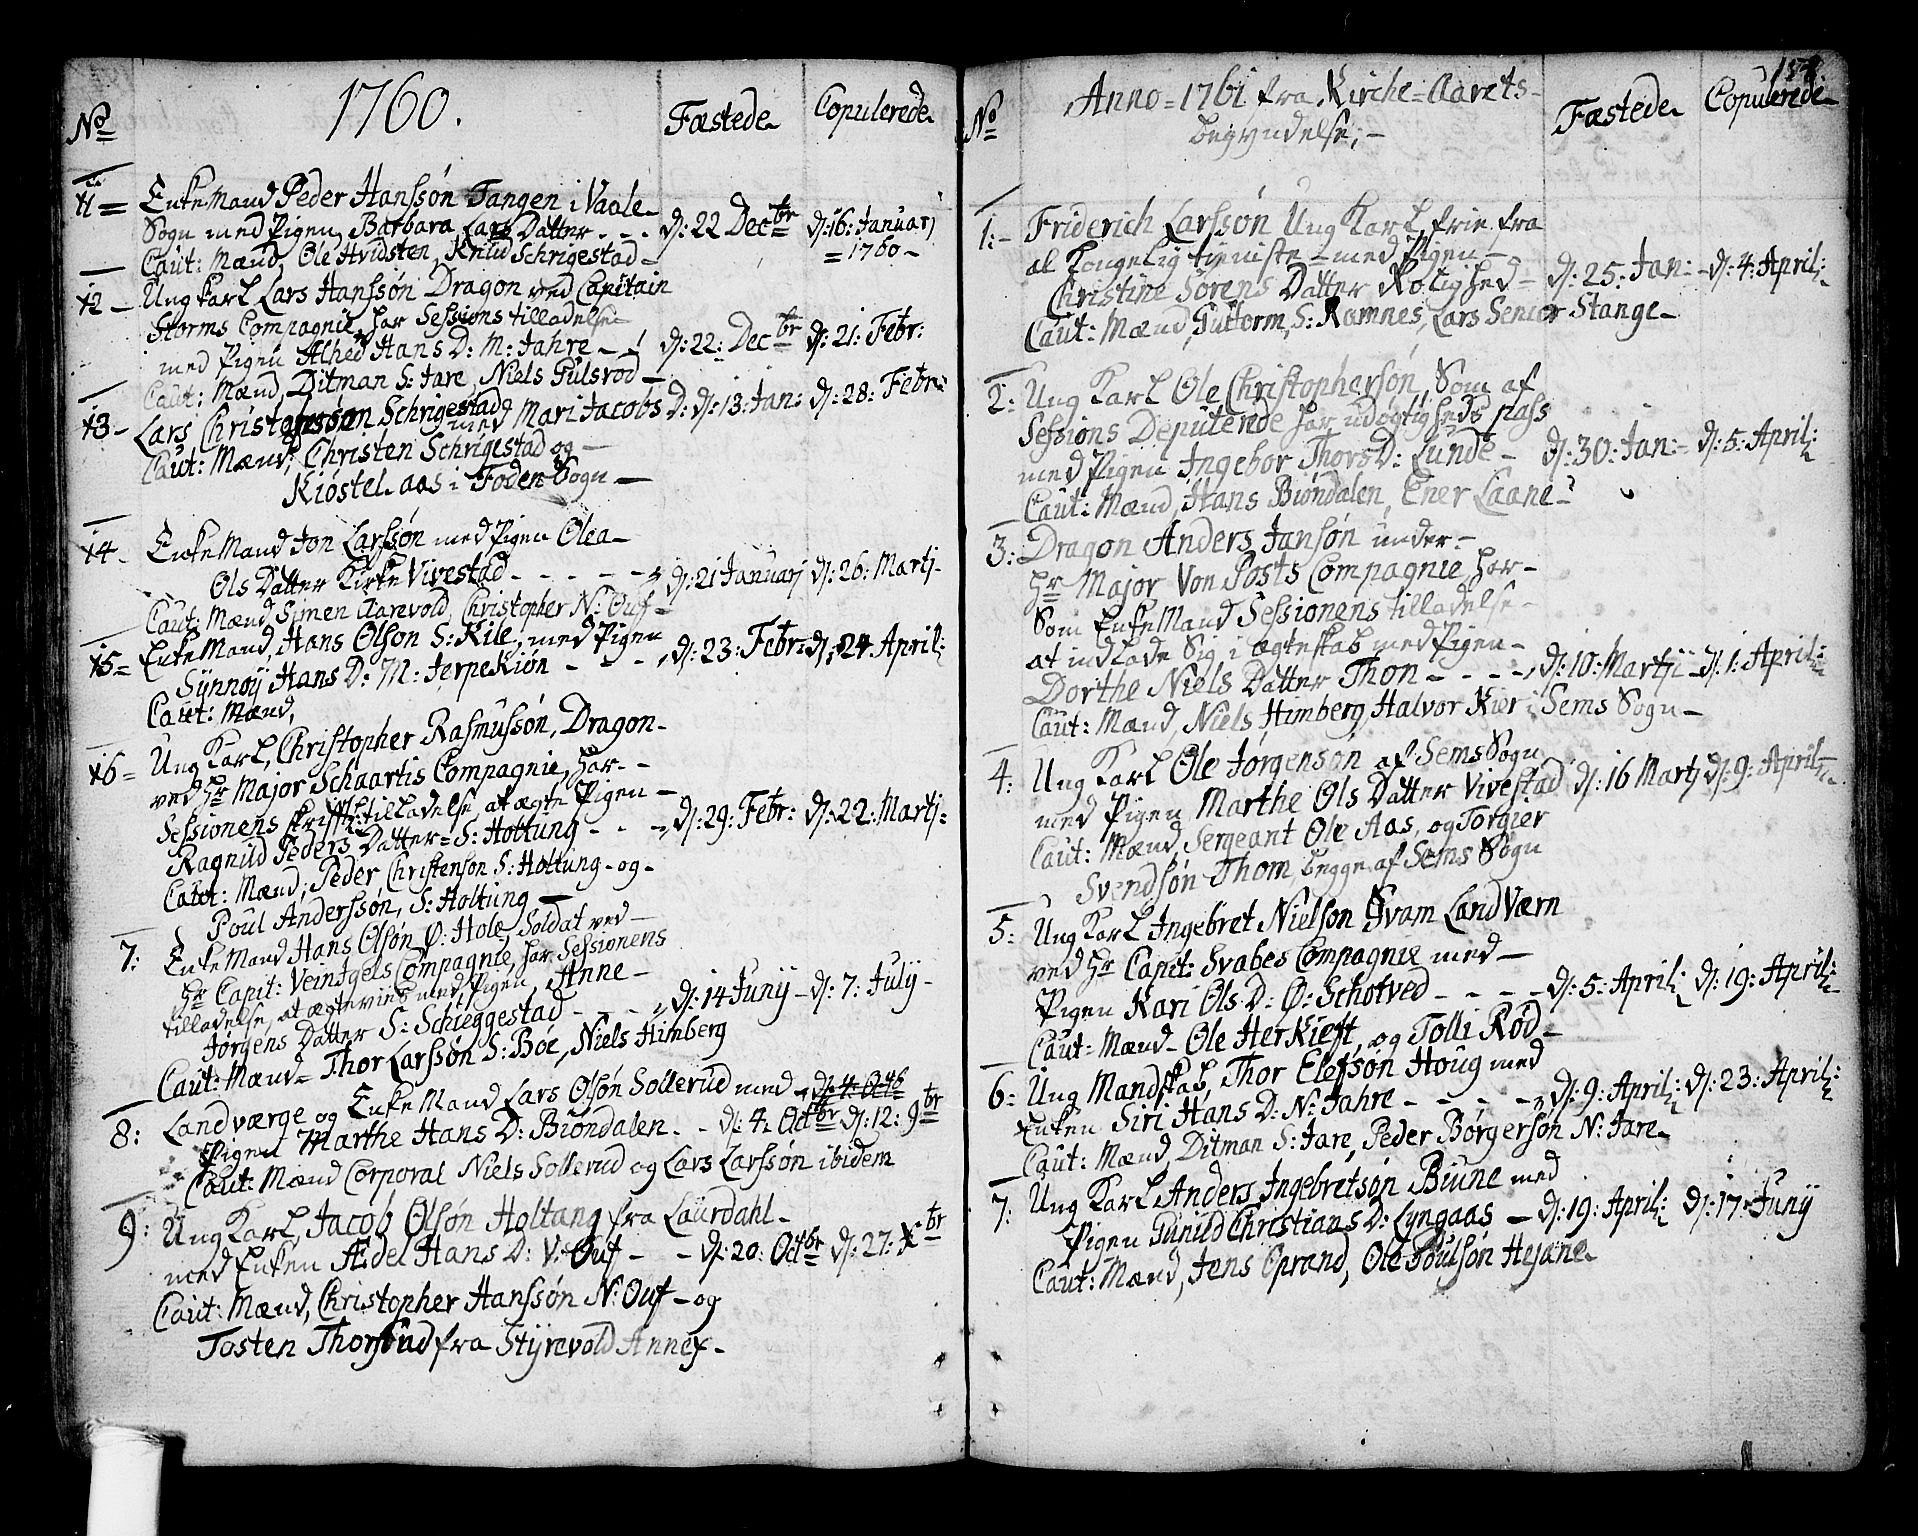 1760.
No
Fæstede
Copulerede
11= Enke Mand Peder Hanssøn Tangen i Vaale-
Sogn med Pigen, Barbara Lars Datter - - - d: 22 Decbr d: 16: Januarj
Caut: Mænd, Ole Hvidsten, Knud Schrigestad - =1760-
12- Ung karl Lars Hanssøn Dragon ved Capitain
Storms Compagnie, har Sessions tilladelse
med Pigen Alhed Hans D: M: Jahre - - d: 22: Decbr d: 21: Febr:
Caut: Mænd, Ditman S: Jare, Niels Gulsrod -
13- Lars Schrigestad med Mari Jacobs D: d: 13: Jan: d: 28: Febr:
Caut: Mænd, Christen Schrigestad og -
Kiostel aas i Foden Sogn -
14- Enke Mand Jon Larssøn med Pigen Olea-
Ols Datter Kirke Vivestad - - - - - d: 21 Januarj d: 26: Martj-
Caut: Mænd Simen Aarevold, Christopher N: Ouf-
15= Enke Mand, Hans Olson S: Kile, med Pigen
Synnøy Hans D: M: JerpeKiøn - - - d: 23: Febr: d: 24 April:
Caut: Mænd,
16= Ung Karl, Christopher Rasmussøn, Dragon-
ved Hr Major Schaartis Compagnie, har- -
Sessionens skriftl: tilladelse, at ægte Pigen -
Ragnild Peders Datter= S: Holtung - - - d: 29: Febr: d: 22: Martj:
Caut: Mænd; Peder Christenson S: Holtung- og-
Poul Anderssøn, S: Holtung -
7: Enke Mand Hans Olsøn Ø: Hole, Soldat ved -
Hr Capit: Veintgels Compagnie, har Sessionens
tilladelse, at ægtevies med Pigen, Anne -
Jørgens Datter S: Schieggestad - - - d: 14 Juny - d: 7: July -
Caut: Mænd= Thor Larssøn S: Bøe, Niels Himberg
8: Landværge og Enke Mand Lars Olsøn Sollerud med -
Pigen Marthe Hans D: Biøndalen - - d: 4. Octbr d: 12: 9br
Caut: Mænd Corporal Niels Sollerud og Lars Larssøn ibidem
9: Ung Karl, Jacob Olsøn Holtang fra Laurdahl-
med Enken Ædel Hans D: V: Ouf - - d: 20: Octbr d: 27: Xbr
Caut: Mænd, Christopher Hanssøn N: Ouf - og
Tosten fra Styrevold Annex-
154.
Anno=1761 fra Kirche=Aarets-
begyndelse; -
No
Fæstede
Copulerede
1:- Friderich Larssøn Ung Karl, frie fra
al kongelig tieniste - med Pigen -
Christine Sørens Datter Rolighed - d: 25: Jan: - d: 4: April:
Caut: Mænd, Guttorm, S: Ramnes, Lars Senior Stange-
2: Ung Karl Ole Christophersøn, Som af
Sessions Deputerede har udøgtigheds pass
med Pigen Ingebor Thors D: Lunde - d: 30: Jan:- d: 5: April:
Caut: Mænd, Hans Biøndalen, Ener Laane-
3: Dragon Anders Jansøn under-
Hr Major Von Posts Compagnie, har-
Som Enke Mand Sessionens tilladelse-
at indlade Sig i ægteskab med Pigen -
Dorthe Niels Datter Thon - - - - d: 10: Martji - d: 1: April:
Caut: Mænd, Niels Himberg, Halvor Kier i Sems Sogn -
4: Ung Karl Ole Jørgenson af Sems Sogn
med Pigen Marthe Ols Datter Vivestad d: 16 Martj d: 9: April:
Caut: Mænd, Sergeant Ole Aas, og Torgier
Svendsøn Thom begge af Sems Sogn
5: Ung Karl Ingebret Nielson Hvam Land Værn
ved Hr Capit: Svabes Compagnie med -
Pigen Kari Ols D: Ø: Schotved - - - - d: 5: April: d: 19: April:
Caut: Mænd- Ole HerKieft, og Tolli Rød-
6: Ung Mandskab, Thor Elefsøn Houg med
Enken Siri Hans D: N: Jahre - - - - d: 9: April: d: 23: April:
Caut: Mænd, Ditman S: Jare, Peder Børgerson N: Jare-
7: Ung Karl Anders Ingebretsøn Biune med
Pigen Gunild Christians D: Lyngaas - d: 19: April: d: 17: Juny
Caut: Mænd, Jens Eprand, Ole Poulsøn Hejane-